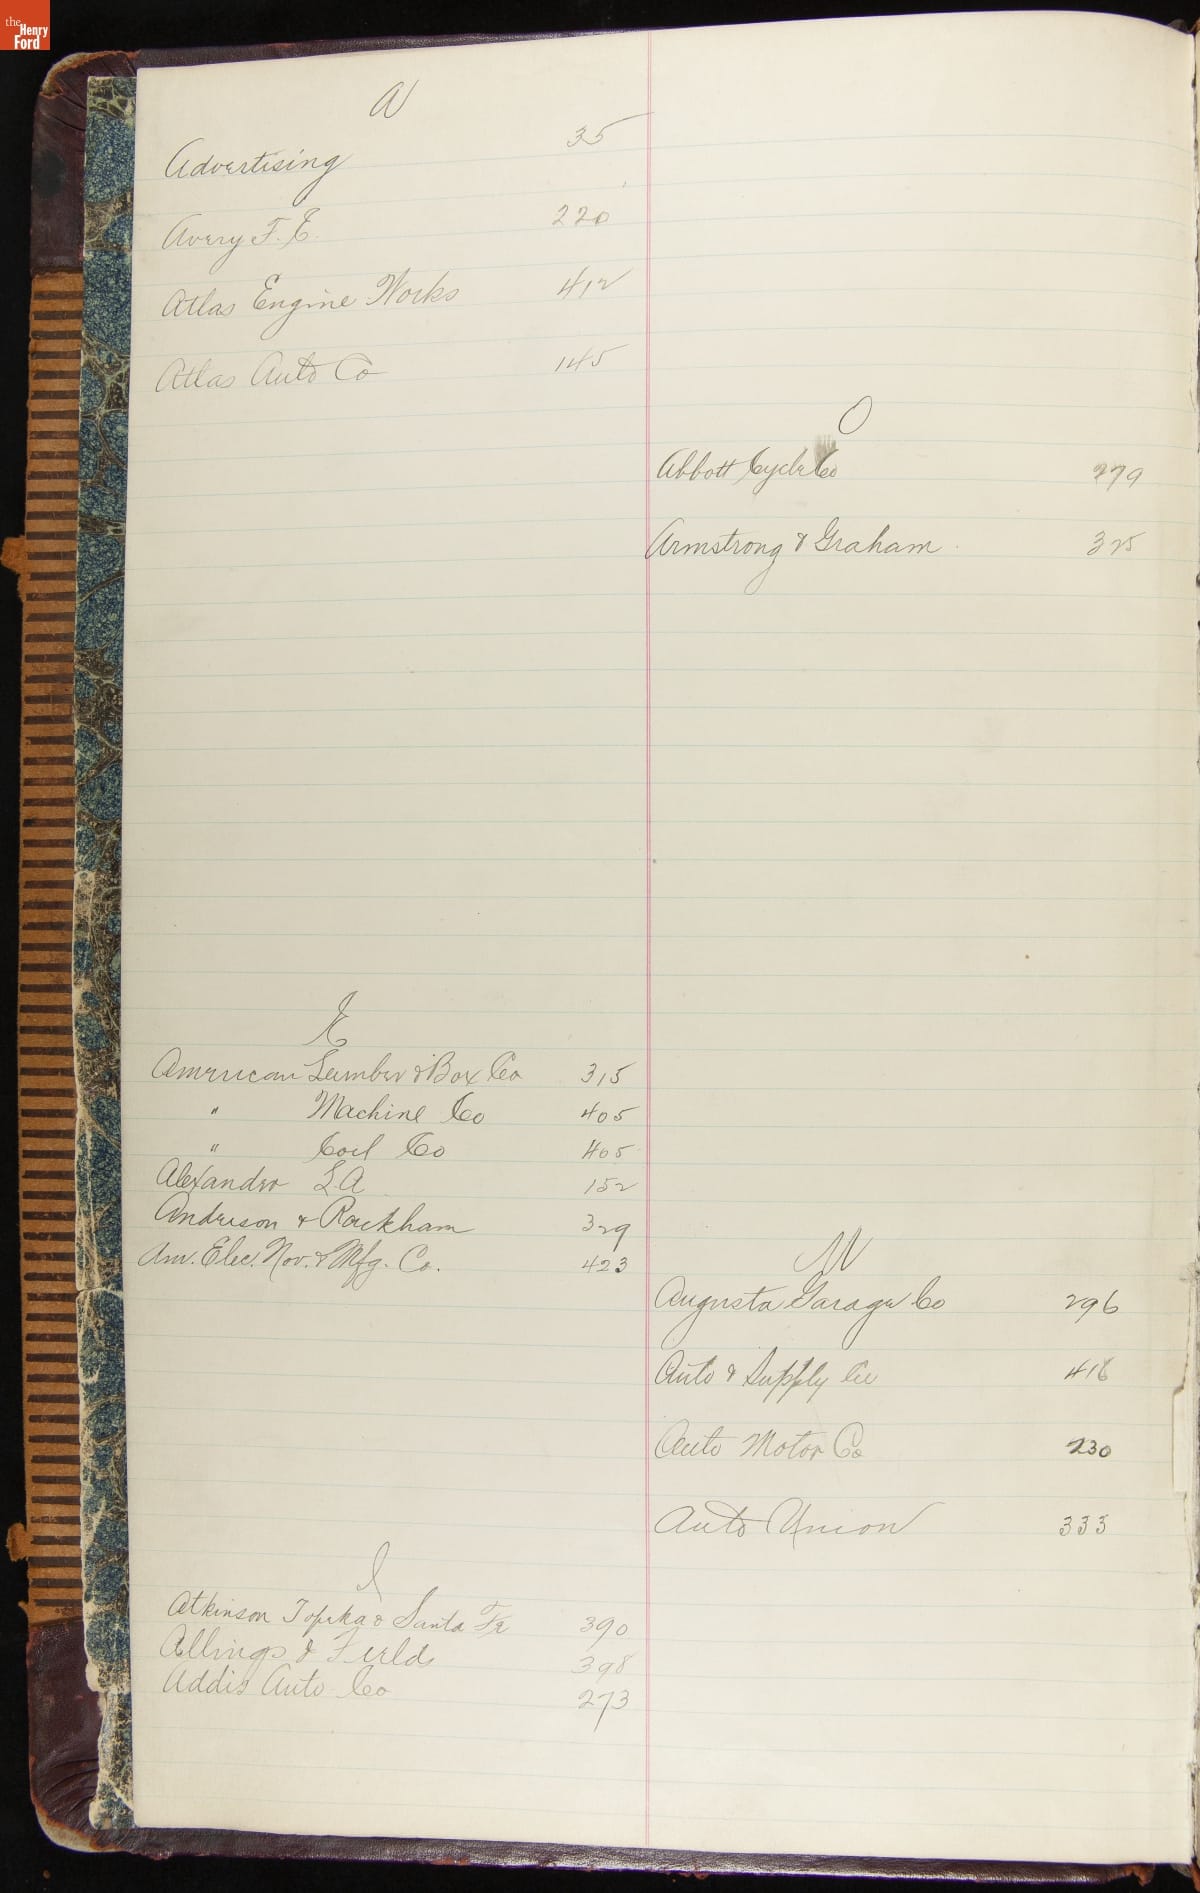 the
Henry
Ford
A
Advertising 35
Avery F. E. 220
Atlas Engine Works 412
Atlas Auto Co 145
E
American Lumber & Box Co 315
" Machine Co 405
" Coil Co 405
Alexander L A 152
Anderson & Rackham 329
Am. Elec. Nov. & Mfg. Co. 423
I
Atkinson Topeka & Santa Fe 390
Allings & Fields 398
Addis Auto Co 273
O
Abbott Cycle Co 279
Armstrong & Graham 325
U
Augusta Garage Co 296
Auto & Supply Co 416
Auto Motor Co 230
Auto Union 333